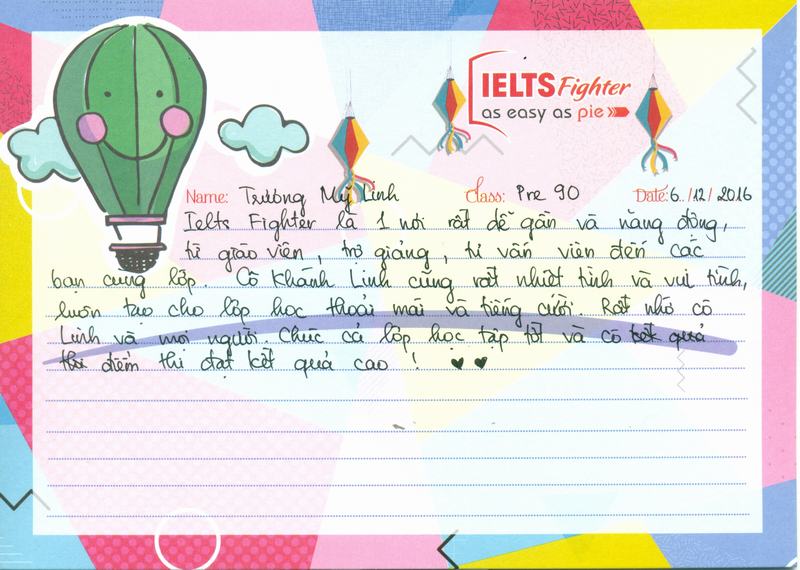 IELTS Fighter
as easy as pie
Name: Trương Mỹ Linh Class: Pre 90 Date: 6../12/2016
Ielts Fighter là 1 nơi rất dễ gần và năng động,
từ giáo viên, trợ giảng, tư vấn viên đến các
bạn cùng lớp. Cô Khánh Linh cũng rất nhiệt tình và vui tính,
luôn tạo cho lớp học thoải mái và tiếng cười. Rất nhớ cô
Linh và mọi người. Chúc cả lớp học tập tốt và có kết quả
thi điểm thi đạt kết quả cao!